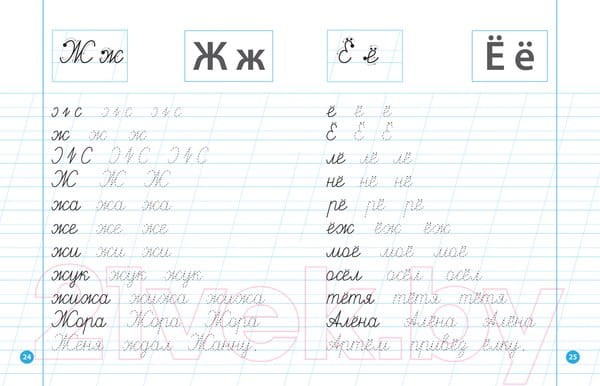 Ж ж Ж ж
ж ж ж
Ж Ж Ж
жа жа жа
же же же
жи жи жи
жук жук жук
жижа жижа жижа
Жора Жора Жора
Женя ждал Жанну.
24
Ё ё Ё ё
ё ё ё
Ё Ё Ё
лё лё лё
нё нё нё
рё рё рё
ёж ёж ёж
моё моё моё
осёл осёл осёл
тётя тётя тётя
Алёна Алёна Алёна
Артём привёз ёлку.
25
21vek.by